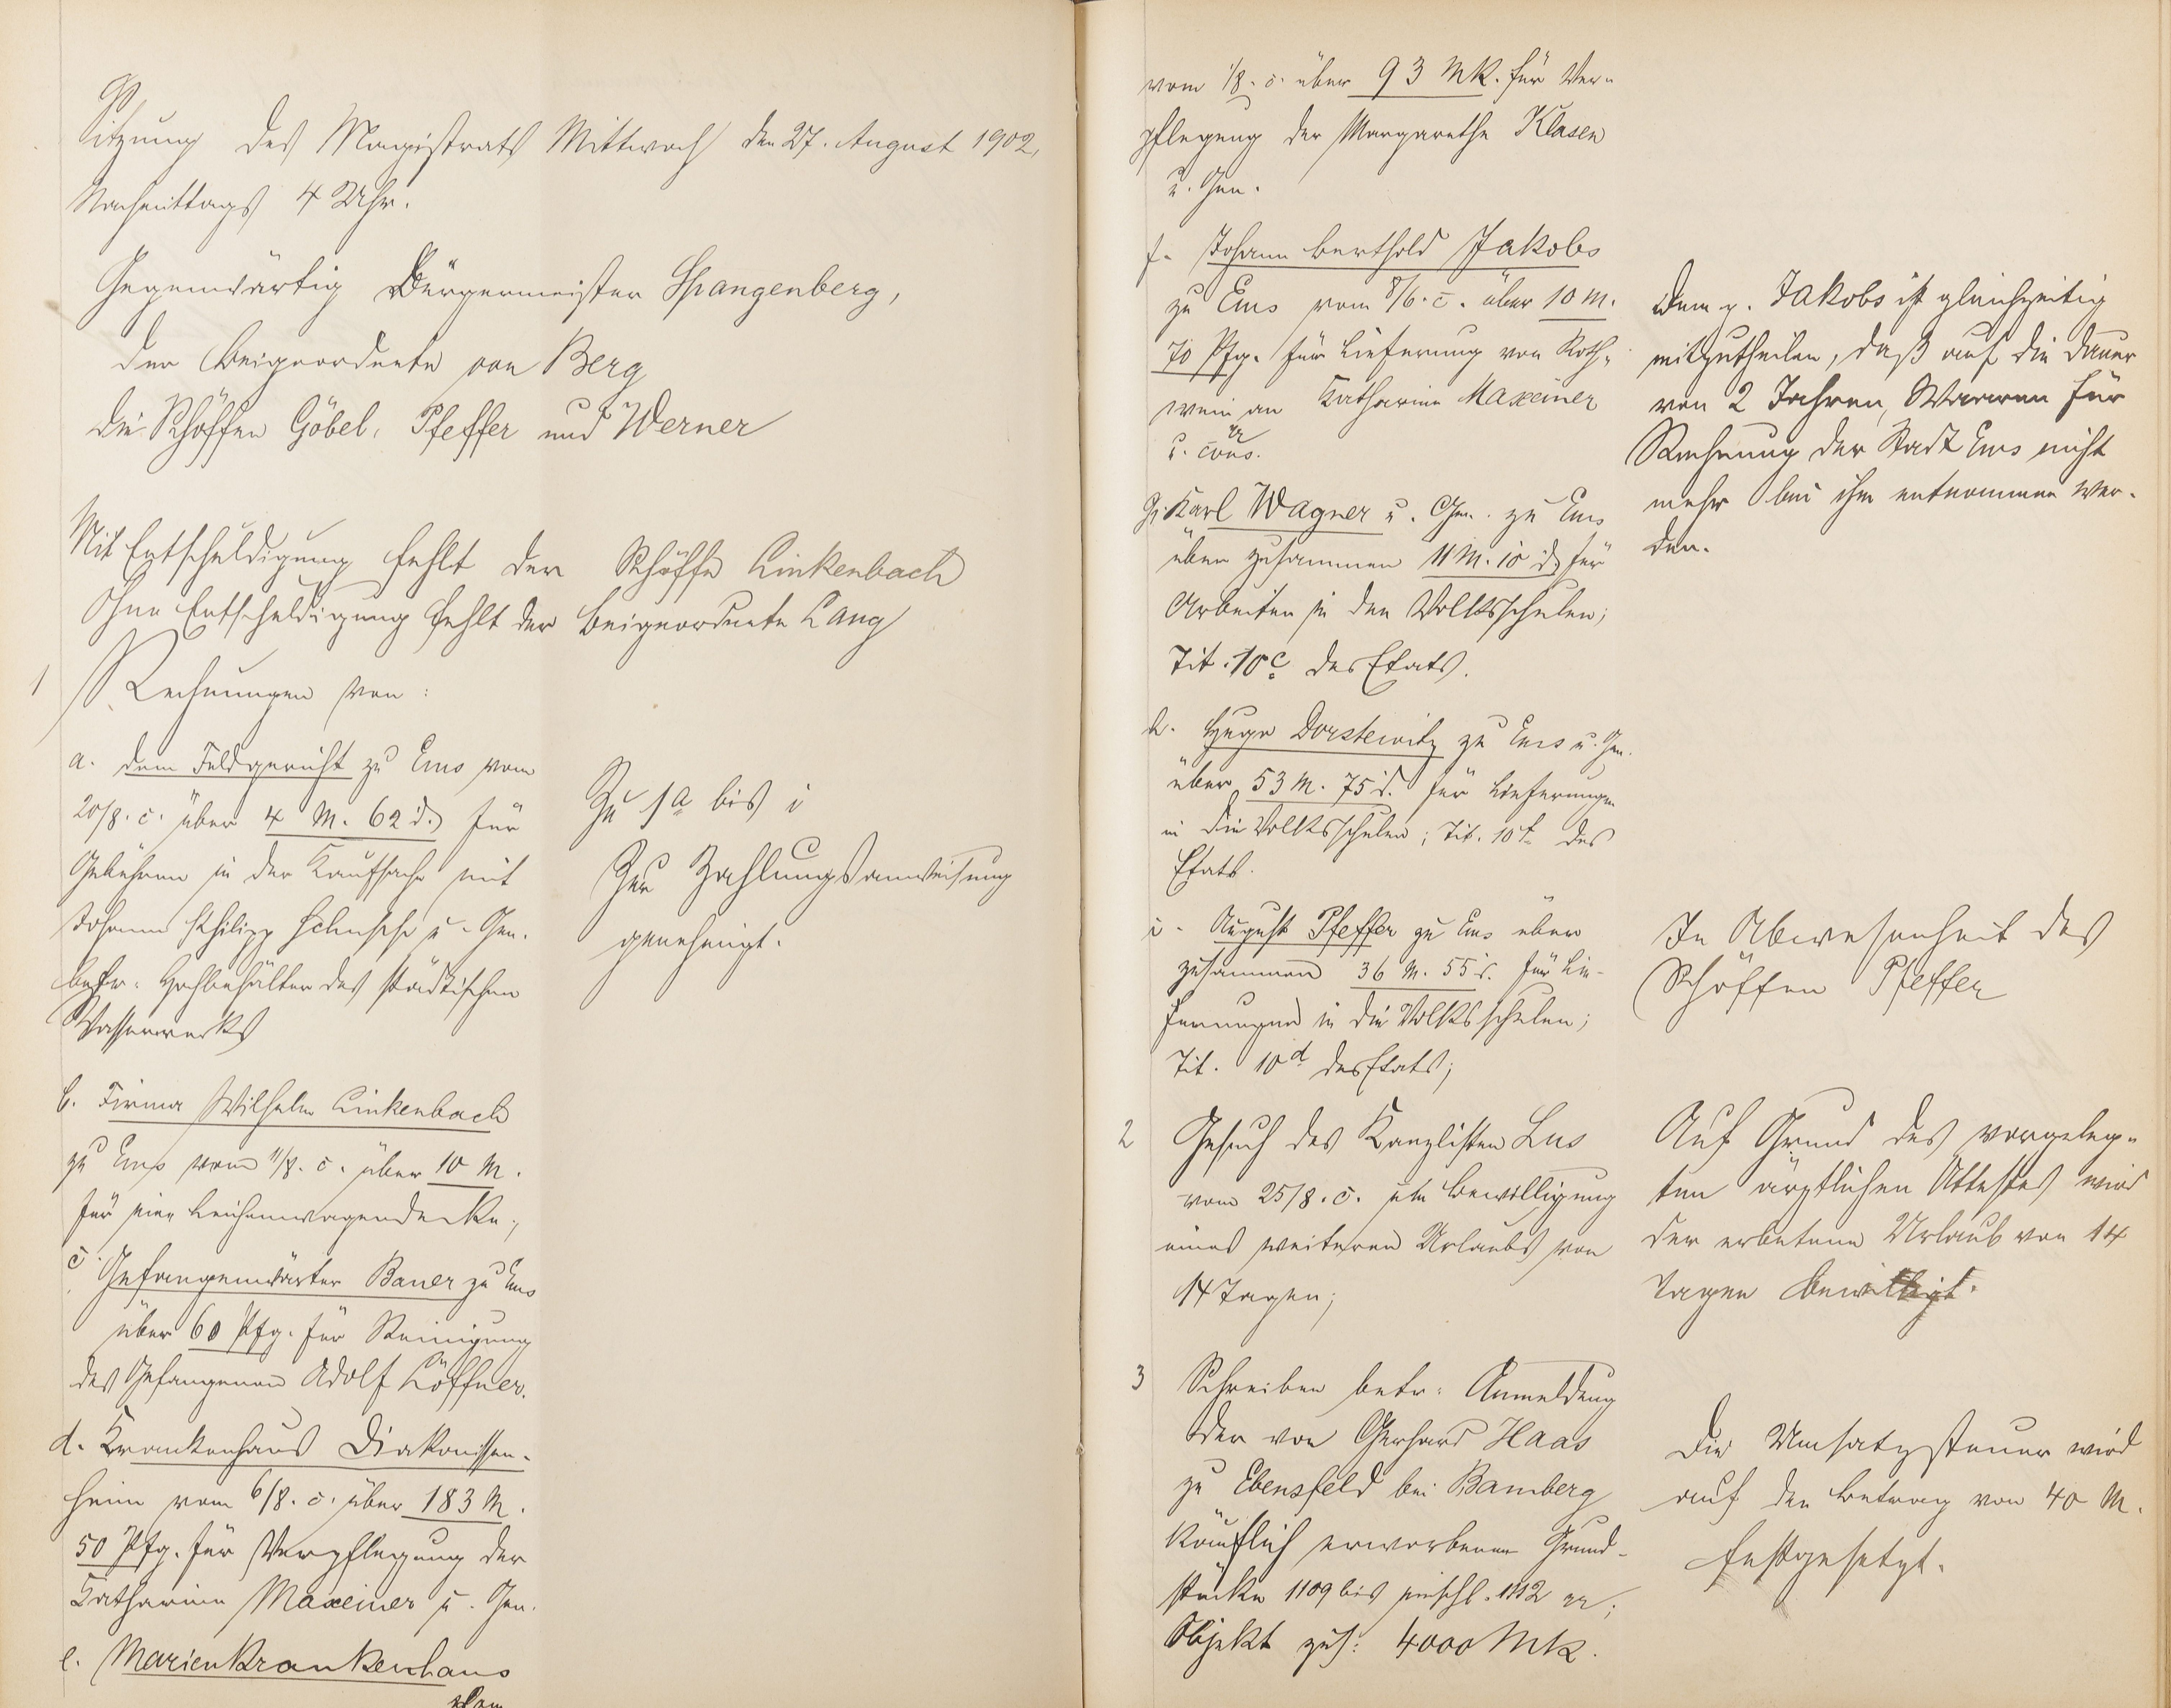 Sitzung des Magistrats Mittwoch den 27. August 1902,
Nachmittags 4 Uhr.
Gegenwärtig Bürgermeister Spangenberg,
der Beigeordnete von Berg
die Schöffen Göbel, Pfeffer und Werner
Mit Entschuldigung fehlt der Schöffe Linkenbach
Ohne Entschuldigung fehlt der Beigeordnete Lang
1
Rechnungen von:
a. dem Feldgericht zu Ems vom
20/8. c. über 4 M. 62 d. für
Gebühren in der Kaufsache mit
Johann Philipp u. Gen.
betr. Hochbehälter des städtischen
Wasserwerks
b. Firma Wilhelm Linkenbach
zu Ems vom 11/8. c. über 10 M.
für eine Leichenwagendecke;
c. Gefangenwärter Bauer zu Ems
über 60 Pfg. für Reinigung
des Gefangenen Adolf Löffner.
d. Krankenhaus Diakonissen-
heim vom 6/8. c. über 183 M.
50 Pfg. für Verpflegung der
Katharina Maxeiner u. Gen.
e. Marienkrankenhaus
Zu 1a bis i
Zur Zahlungsanweisung
genehmigt.
vom 1/8. c. über 93 Mk. für Ver-
pflegung der Margarethe Klasen
u. Gen.
f. Johann Berthold Jakobs
zu Ems vom 8/6. c. über 10 M.
70 Pfg. für Lieferung von Roth-
wein an Katharina Maxeiner
u. cons.
Dem p. Jakobs ist gleichzeitig
mitzutheilen, daß auf die Dauer
von 2 Jahren, Waaren für
Rechnung der Stadt Ems nicht
mehr bei ihm entnommen wer-
den.
g. Karl Wagner u. Gen. zu Ems
über zusammen 11 M. 10 d für
Arbeiten in den Volksschulen;
Tit. 10c des Etats.
h. Hugo Dorstewitz zu Ems u. Gen.
über 53 M. 75 d. für Lieferungen
in die Volksschulen; Tit. 10f des
Etats.
i. August Pfeffer zu Ems über
zusammen 36 M. 55 d. für Lie-
ferungen in die Volksschulen;
Tit. 10d des Etats;
In Abwesenheit des
Schöffen Pfeffer
2
Gesuch des Kanzlisten Lus
vom 25/8. c. um Bewilligung
eines weiteren Urlaubs von
14 Tagen;
Auf Grund des vorgeleg-
ten ärztlichen Attestes wird
der erbetene Urlaub von 14
Tagen bewilligt.
3
Schreiben betr. Anmeldung
der von Gerhard Haas
zu Ebensfeld bei Bamberg
käuflich erworbenen Grund-
stücke 1109 bis einschl. 1112 rr;
Objekt zus: 4000 Mk.
Die Umsatzsteuer wird
auf den Betrag von 40 M.
festgesetzt.